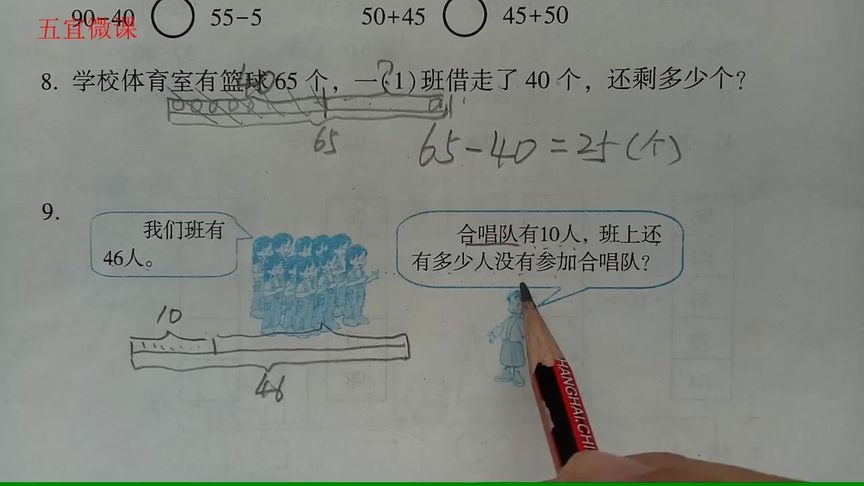 90-40 ○ 55-5 50+45 ○ 45+50
五宜微课
8. 学校体育室有篮球65个，一(1)班借走了40个，还剩多少个？
40 ?
65
65-40=25(个)
9.
我们班有
46人。
合唱队有10人，班上还
有多少人没有参加合唱队？
10
46
HANGHAI.CHI